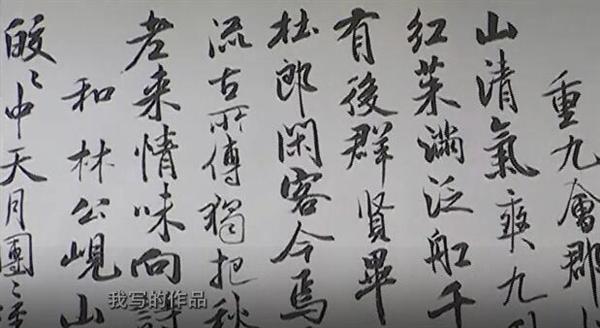 重九會郡
山清氣爽九
紅茱滿泛舩千
有後群賢畢
杜郎閑客今焉
流古所傳獨把秋
老来情味向詩
和林公峴山
皎〻中天月團〻
我写的作品